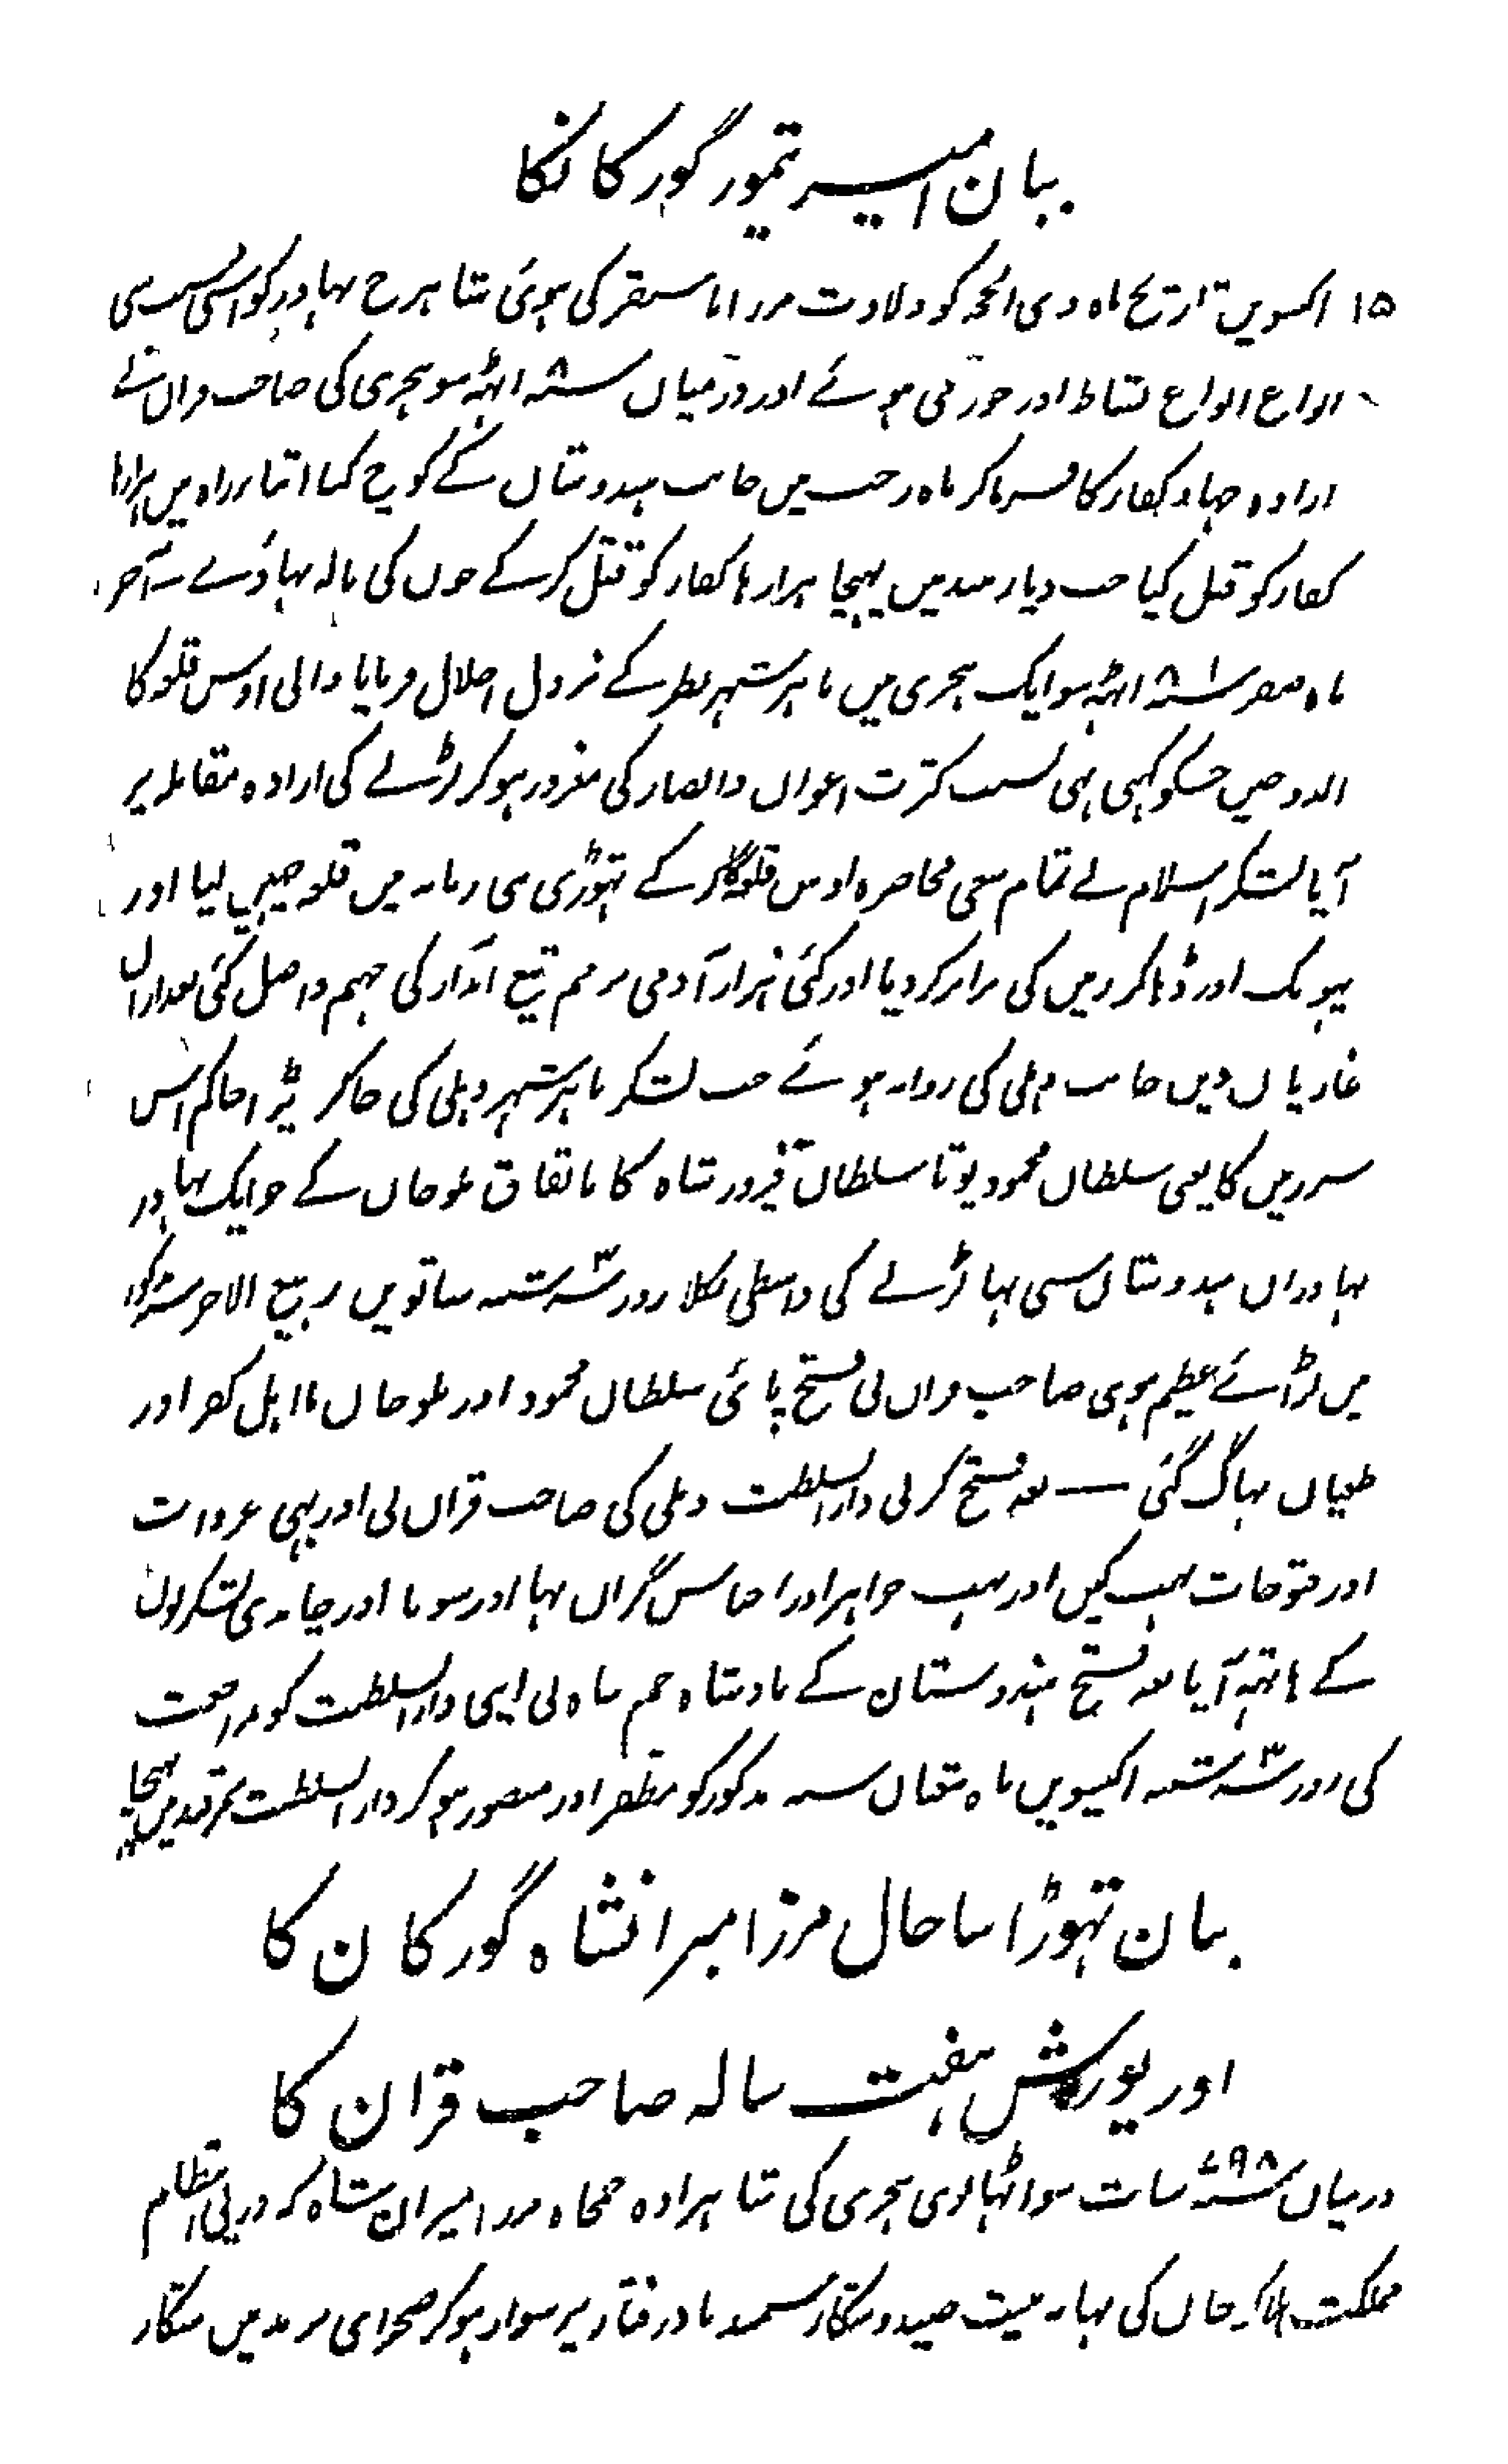 بیان امیر تیمور گورکانکا
۱۵ اکسویں تاریخ ماہ ذی الحجہ کو ولادت مرزا باسنقر کی ہوئی شاہرخ بہادر کو اسی سبب سی
انواع انواع نشاط اور خورمی ہوئے اور درمیان سنہ ۸ اٹہہ سو ہجری کی صاحب قران نے
ارادہ جہاد کفار کا فرما کر ماہ رجب میں جانب ہندوستان کے کوچ کیا اثناء راہ میں ہزارہا
کفار کو قتل کیا جب دیار ہند میں پہنچا ہزارہا کفار کو قتل کر کے خون کی نالہ بہاوٗے آخر
ماہ صفر سنہ ۸ اٹہہ سو ایک ہجری میں باہر شہر کے نزول اجلال فرمایا والی اوس قلعہ کا
الدوحین جسکو کہی ہی بسبب کثرت اعوان و انصار کی مغرور ہو کر لڑنے کی ارادہ مقابلہ پر
آیا لشکر اسلام نے تمام سعی محاصرہ اوس قلعہ کا کر کے تہوڑی سی زمانہ میں قلعہ چہین لیا اور
پہونک اور ڈہا کر زمین کی برابر کر دیا اور کئی ہزار آدمی تیغ آبدار کی جہنم واصل کئی بعد ازاں
غازیان دین جانب دہلی کی روانہ ہوئے جب لشکر باہر شہر دہلی کی جا کر پڑا حاکم اس
سرزمین کا یعنی سلطان محمود پوتا سلطان فیروز شاہ کا باتفاق ملوخان کے جو ایک بہادر
بہادران ہندوستان سی تہا لڑنے کی واسطی نکلا روز سہ شنبہ ساتویں ربیع الاخر سنہ مذکور
میں لڑائے عظیم ہوئی صاحب قران نی فتح پائی سلطان محمود اور ملوخان با اہل کفر اور
طغیان بہاگ گئی — بعد فتح کرنی دار السلطنت دہلی کی صاحب قران نی اور بہی غزوات
اور فتوحات بہت کیں اور بہت جواہر اور اجناس گراں بہا اور سونا اور چاندی لشکریوں
کے ہاتہہ آیا بعد فتح ہندوستان کے بادشاہ جم جاہ نی اپنی دار السلطنت کو مراجعت
کی روز سہ شنبہ اکیسویں ماہ شعبان سنہ مذکور کو مظفر اور منصور ہو کر دار السلطنت سمرقند میں پہنچا
بیان تہوڑا سا حال مرزا میرانشاہ گورکان کا
اور یورش ہفت سالہ صاحب قران کا
درمیان سنہ ۷۹۸ سات سو اٹہانوی ہجری کی شاہزادہ جمجاہ مرزا میران شاہ کہ درپی انتظام
مملکت ہلاکو خان کی تہا بہ نیت صید و شکار سمند باد رفتار پر سوار ہو کر صحرای مرند میں شکار